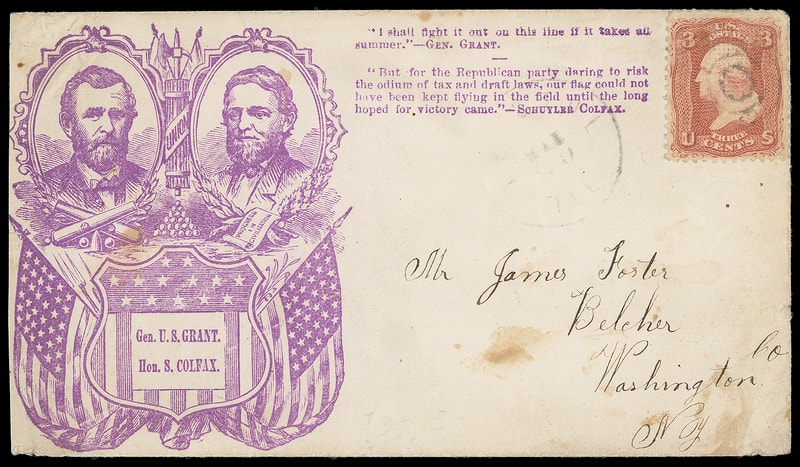 "I shall fight it out on this line if it takes all
summer."—GEN. GRANT.
"But for the Republican party daring to risk
the odium of tax and draft laws, our flag could not
have been kept flying in the field until the long
hoped for victory came."—SCHUYLER COLFAX.
3 U.S. POSTAGE 3
U THREE CENTS S
Gen. U. S. GRANT.
Hon. S. COLFAX.
Mr James Foster
Belcher
Washington Co
NY